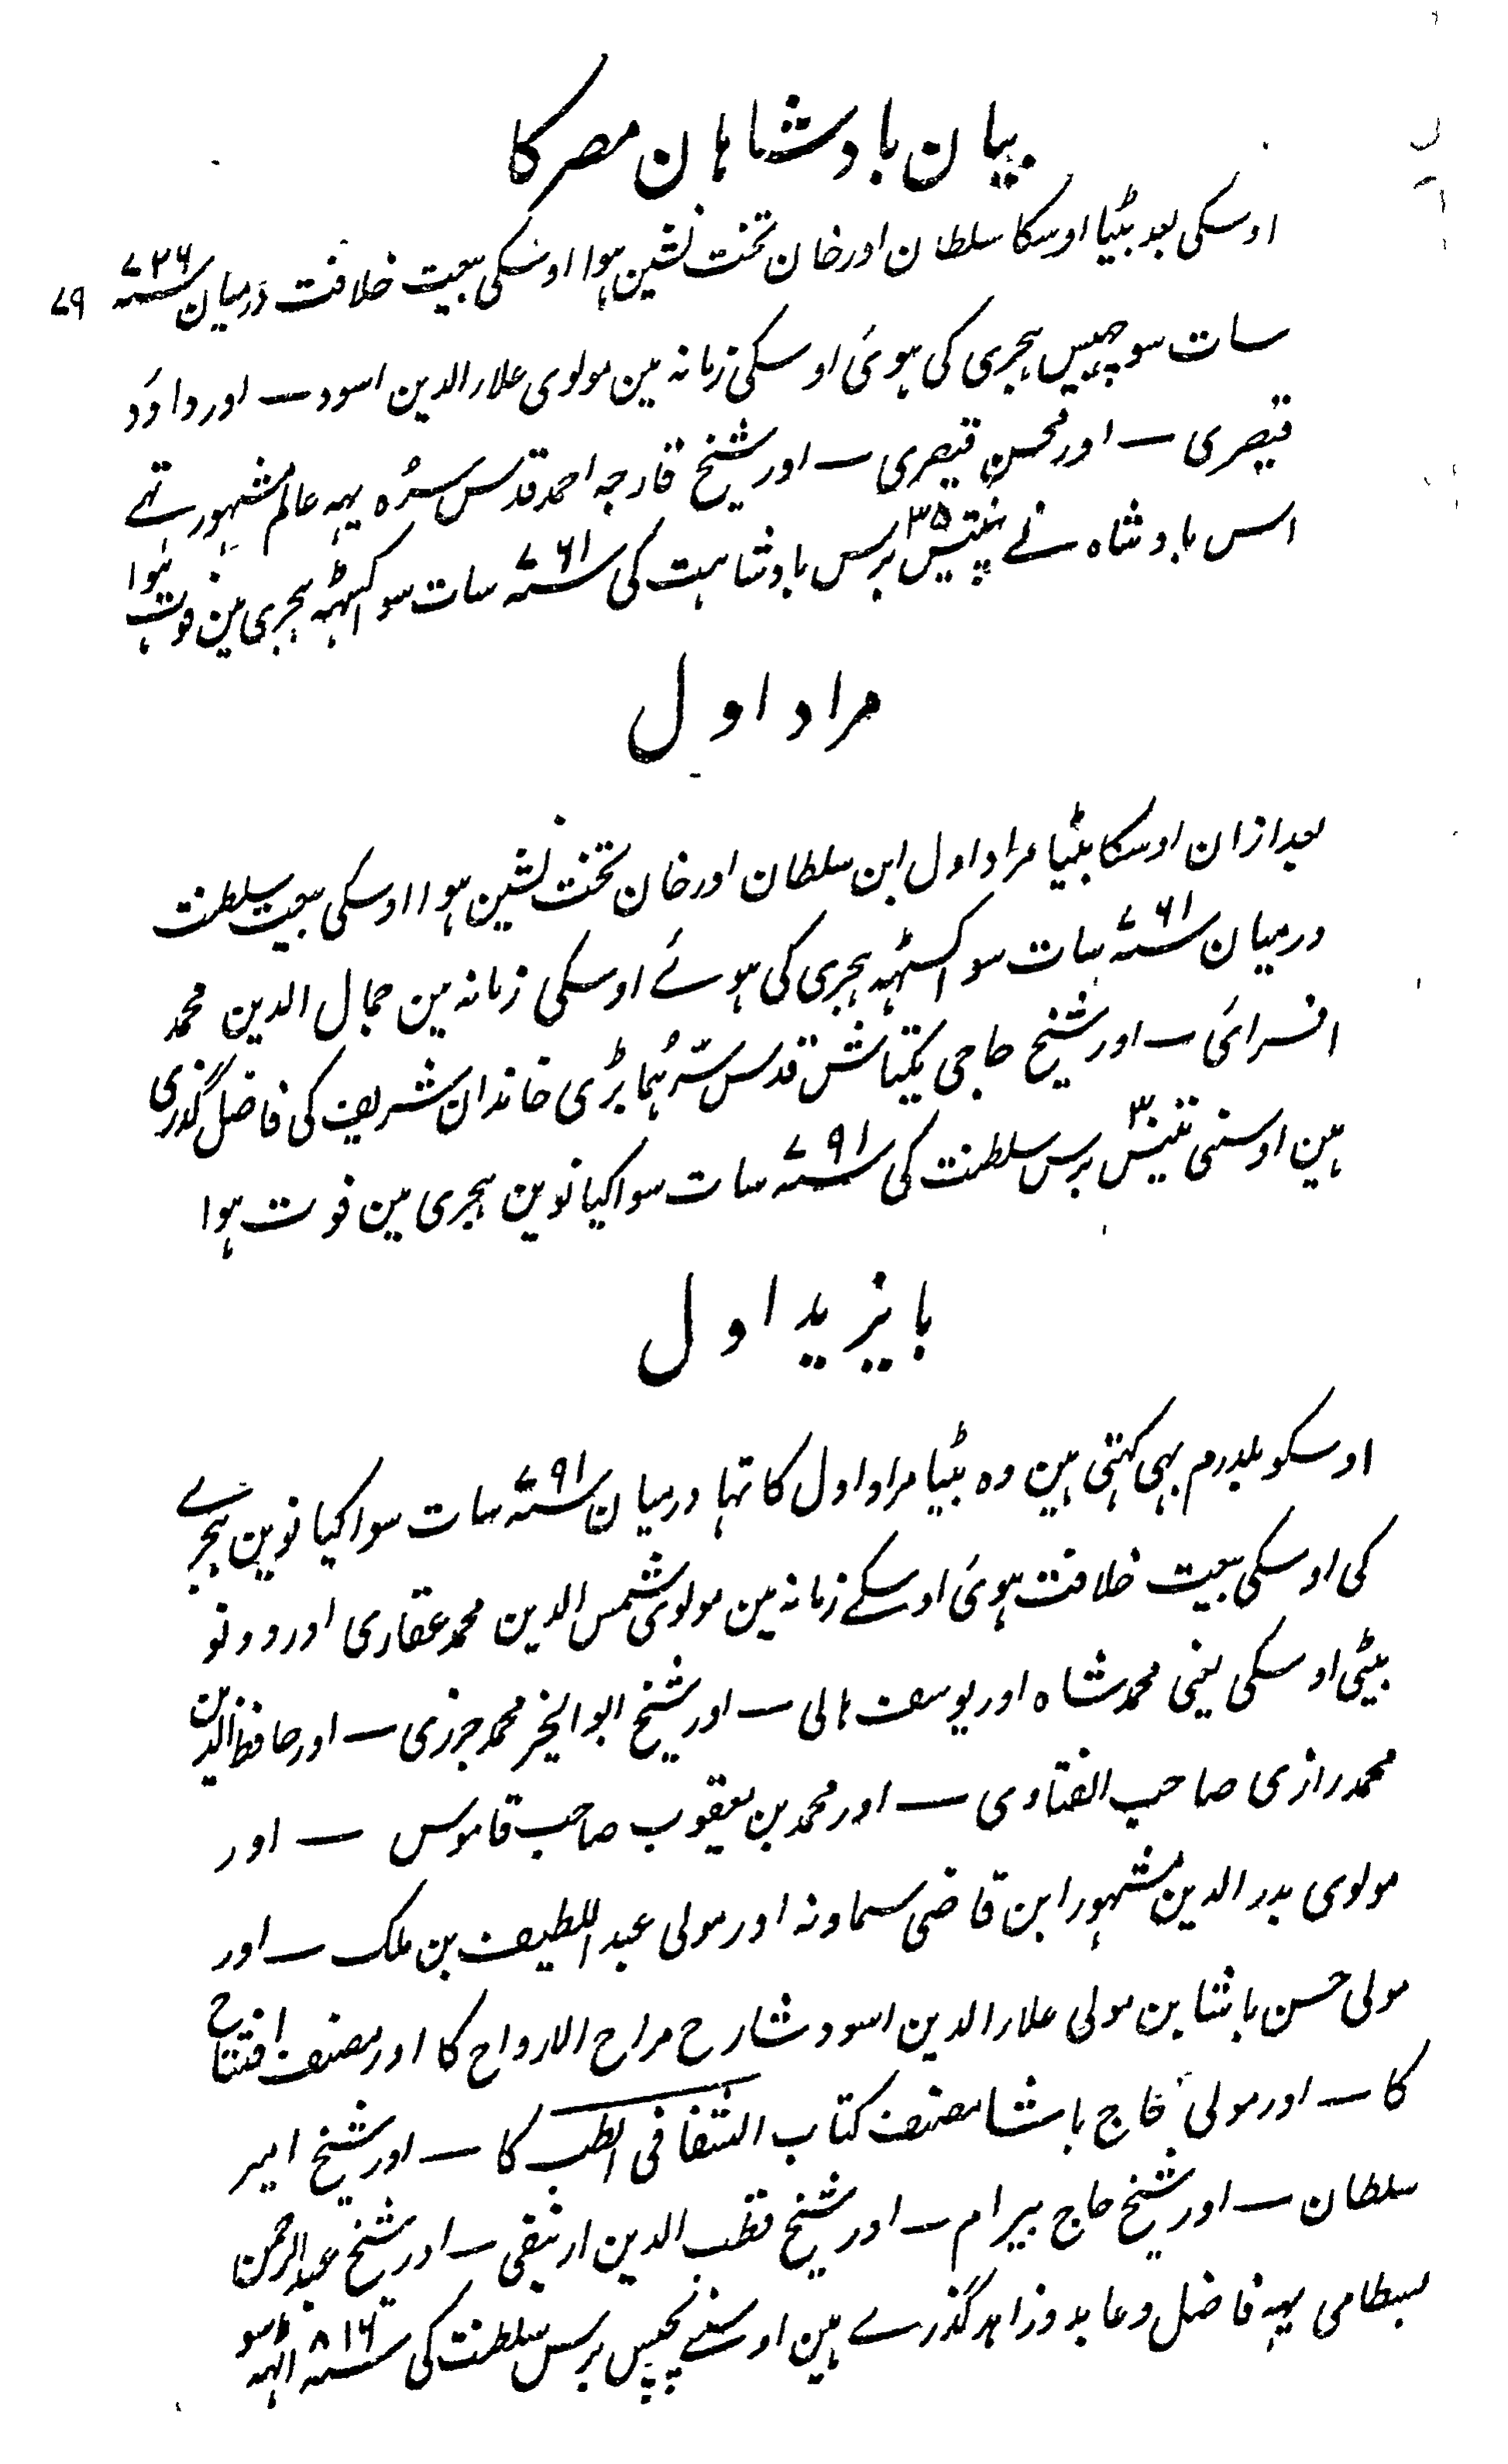 بیان بادشاہان مصر کا
اوسکی بعد بٹیا اوسکا سلطان اورخان تخت نشین ہوا اوسکی بیعت خلافت درمیان سنہ ۷۲۶
۷۹
سات سو چھبیس ہجری کی ہوئی اوسکی زمانہ مین مولوی علاء الدین اسود — اور داؤد
قیصری — اور محسن قیصری — اور شیخ قارجہ احمد قدس سرہ یہہ عالم مشہور تہے
اس بادشاہ نے پنتیس ۳۵ برس بادشاہت کی سنہ ۷۶۱ سات سو اکسٹہہ ہجری مین فوت ہوا
مراد اول
بعد ازان اوسکا بٹیا مراد اول ابن سلطان اورخان تخت نشین ہوا اوسکی بیعت سلطنت
درمیان سنہ ۷۶۱ سات سو اکسٹہہ ہجری کی ہوئے اوسکی زمانہ مین جمال الدین محمد
اقسرائی — اور شیخ حاجی بکتاش قدس سرہما بڑی خاندان شریف کی فاضل گذری
ہین اوسنی تیس ۳۰ برس سلطنت کی سنہ ۷۹۱ سات سو اکیانوین ہجری مین فوت ہوا
بایزید اول
اوسکو یلدرم بہی کہتی ہین وہ بٹیا مراد اول کا تہا درمیان سنہ ۷۹۱ سات سو اکیانوین ہجرے
کی اوسکی بیعت خلافت ہوئی اوسکے زمانہ مین مولوی شمس الدین محمد عقاری اور دونو
بیٹی اوسکی یعنی محمد شاہ اور یوسف بالی — اور شیخ ابو الخیر محمد جزری — اور حافظ الدین
محمد رازی صاحب الفتاوی — اور محمد بن یعقوب صاحب قاموس — اور
مولوی بدر الدین مشہور ابن قاضی سماونہ اور مولی عبد اللطیف بن ملک — اور
مولی حسن باشا بن مولی علاء الدین اسود شارح مراح الارواح کا اور مصنف افتتاح
کا — اور مولی حاج باشا مصنف کتاب الشفا فی الطب کا — اور شیخ امیر
سلطان — اور شیخ حاج بیرام — اور شیخ قطب الدین ازنیقی — اور شیخ عبد الرحمن
بسطامی یہہ فاضل و عابد و زاہد گذرے ہین اوسنے پچیس برس سلطنت کی سنہ ۸۱۶ آٹہہ سو